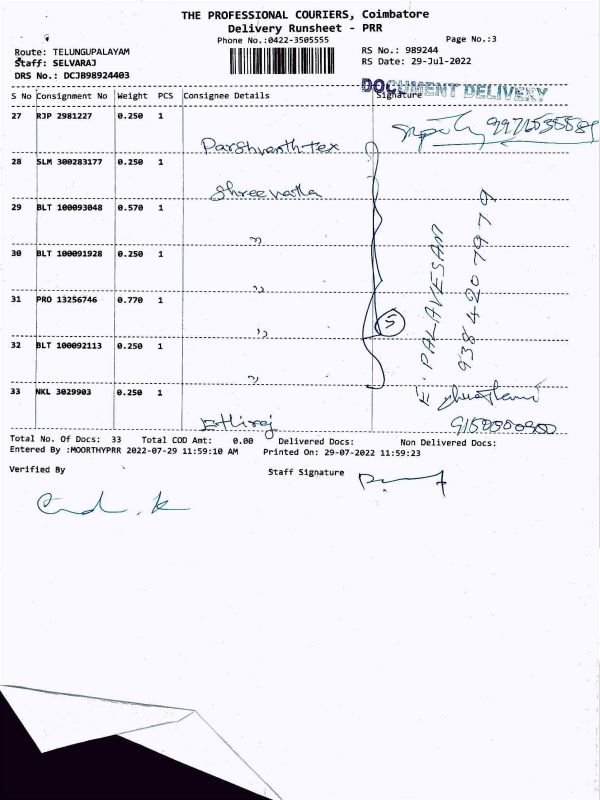 THE PROFESSIONAL COURIERS, Coimbatore
Delivery Runsheet - PRR
Phone No.:0422-3505555
Page No.:3
Route: TELUNGUPALAYAM
RS No.: 989244
Staff: SELVARAJ
RS Date: 29-Jul-2022
DRS No.: DCJB98924403
DOCUMENT DELIVERY
S No Consignment No Weight PCS Consignee Details Signature
27 RJP 2981227 0.250 1
Parshvanth tex
28 SLM 300283177 0.250 1
Shree vatla
29 BLT 100093048 0.570 1
"
30 BLT 100091928 0.250 1
"
31 PRO 13256746 0.770 1
"
5
32 BLT 100092113 0.250 1
"
E. PALAVESAN
938 420 7979
33 NKL 3029903 0.250 1
Ethiraj
Total No. Of Docs: 33 Total COD Amt: 0.00 Delivered Docs: Non Delivered Docs:
Entered By :MOORTHYPRR 2022-07-29 11:59:10 AM Printed On: 29-07-2022 11:59:23
Verified By
Staff Signature